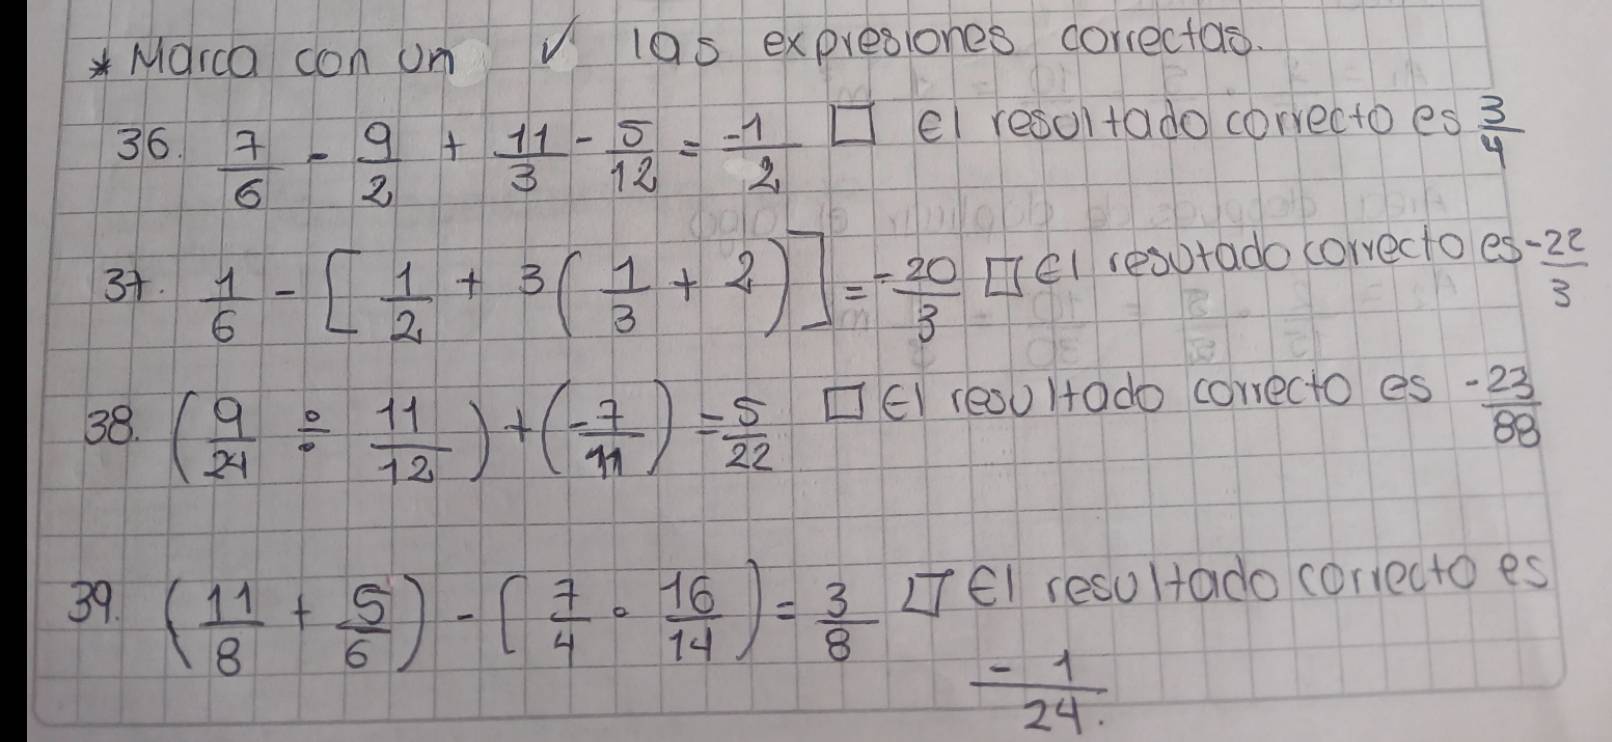 * Marca con un ✓ las expresiones correctas.
36. 7/6 - 9/2 + 11/3 - 5/12 = -1/2 □ El resultado correcto es 3/4
37. 1/6 - [1/2 + 3(1/3 + 2)] = -20/3 □ El resutado correcto es -22/3
38. (9/24 ÷ 11/12) + (-7/11) = -5/22 □ El resultado correcto es -23/88
39. (11/8 + 5/6) - (7/4 · 16/14) = 3/8 □ El resultado correcto es
-1/24.